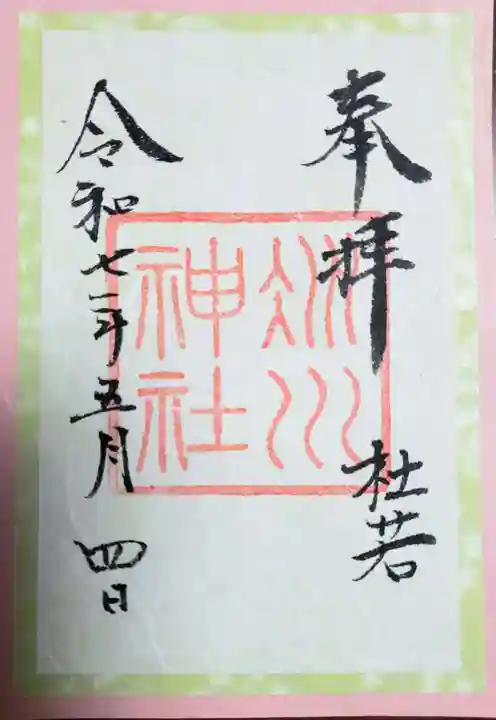 奉拝
杜若
氷川
神社
令和七年五月四日